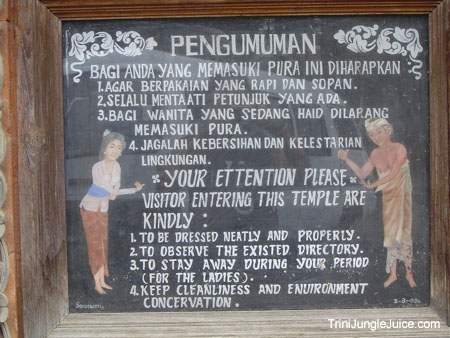 PENGUMUMAN
BAGI ANDA YANG MEMASUKI PURA INI DIHARAPKAN :
1. AGAR BERPAKAIAN YANG RAPI DAN SOPAN.
2. SELALU MENTAATI PETUNJUK YANG ADA.
3. BAGI WANITA YANG SEDANG HAID DILARANG
MEMASUKI PURA.
4. JAGALAH KEBERSIHAN DAN KELESTARIAN
LINGKUNGAN.
YOUR ETTENTION PLEASE
VISITOR ENTERING THIS TEMPLE ARE
KINDLY :
1. TO BE DRESSED NEATLY AND PROPERLY.
2. TO OBSERVE THE EXISTED DIRECTORY.
3. TO STAY AWAY DURING YOUR PERIOD
(FOR THE LADIES).
4. KEEP CLEANLINESS AND ENVIRONMENT
CONCERVATION.
TriniJungleJuice.com